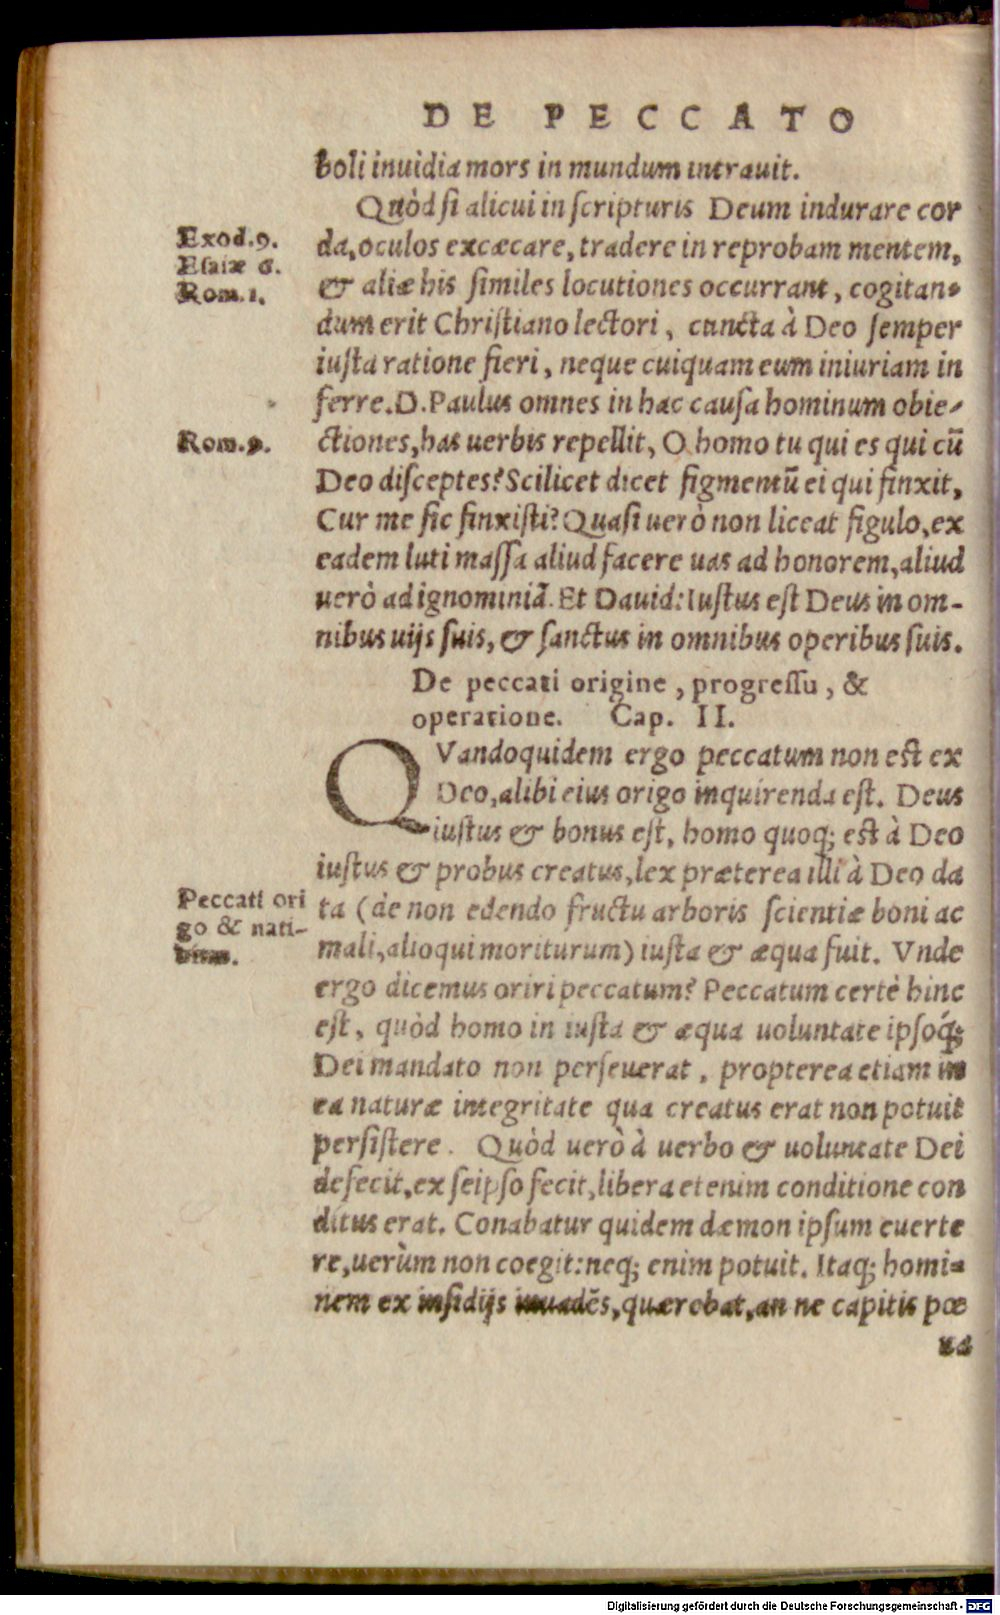 DE PECCATO
boli inuidia mors in mundum intrauit.
Quòd si alicui in scripturis Deum indurare cor
Exod.9.
da, oculos excæcare, tradere in reprobam mentem,
Esaiæ 6.
Rom.1.
& aliæ his similes locutiones occurrant, cogitan-
dum erit Christiano lectori, cuncta à Deo semper
iusta ratione fieri, neque cuiquam eum iniuriam in
ferre. D. Paulus omnes in hac causa hominum obie-
Rom.9.
ctiones, has uerbis repellit, O homo tu qui es qui cū
Deo disceptes? Scilicet dicet figmentū ei qui finxit,
Cur me sic finxisti? Quasi uerò non liceat figulo, ex
eadem luti massa aliud facere uas ad honorem, aliud
uerò ad ignominiā. Et Dauid: Iustus est Deus in om-
nibus uijs suis, & sanctus in omnibus operibus suis.
De peccati origine, progressu, &
operatione. Cap. II.
QVandoquidem ergo peccatum non est ex
Deo, alibi eius origo inquirenda est. Deus
iustus & bonus est, homo quoq; est à Deo
iustus & probus creatus, lex præterea illi à Deo da
Peccati ori
go & nati-
ta (de non edendo fructu arboris scientiæ boni ac
mali, alioqui moriturum) iusta & æqua fuit. Vnde
ergo dicemus oriri peccatum? Peccatum certè hinc
est, quòd homo in iusta & æqua uoluntate ipsoq́;
Dei mandato non perseuerat, propterea etiam in
ea naturæ integritate qua creatus erat non potuit
persistere. Quòd uerò à uerbo & uoluntate Dei
defecit, ex seipso fecit, libera etenim conditione con
ditus erat. Conabatur quidem dæmon ipsum euerte
re, uerùm non coegit: neq; enim potuit. Itaq; homi-
nem ex insidijs inuadēs, quærebat, an ne capitis pœ
na